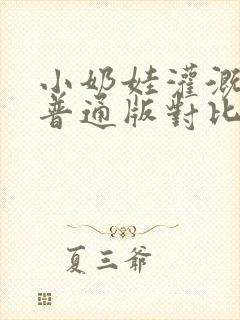 小奶娃灌溉
普通版對比
夏三爺